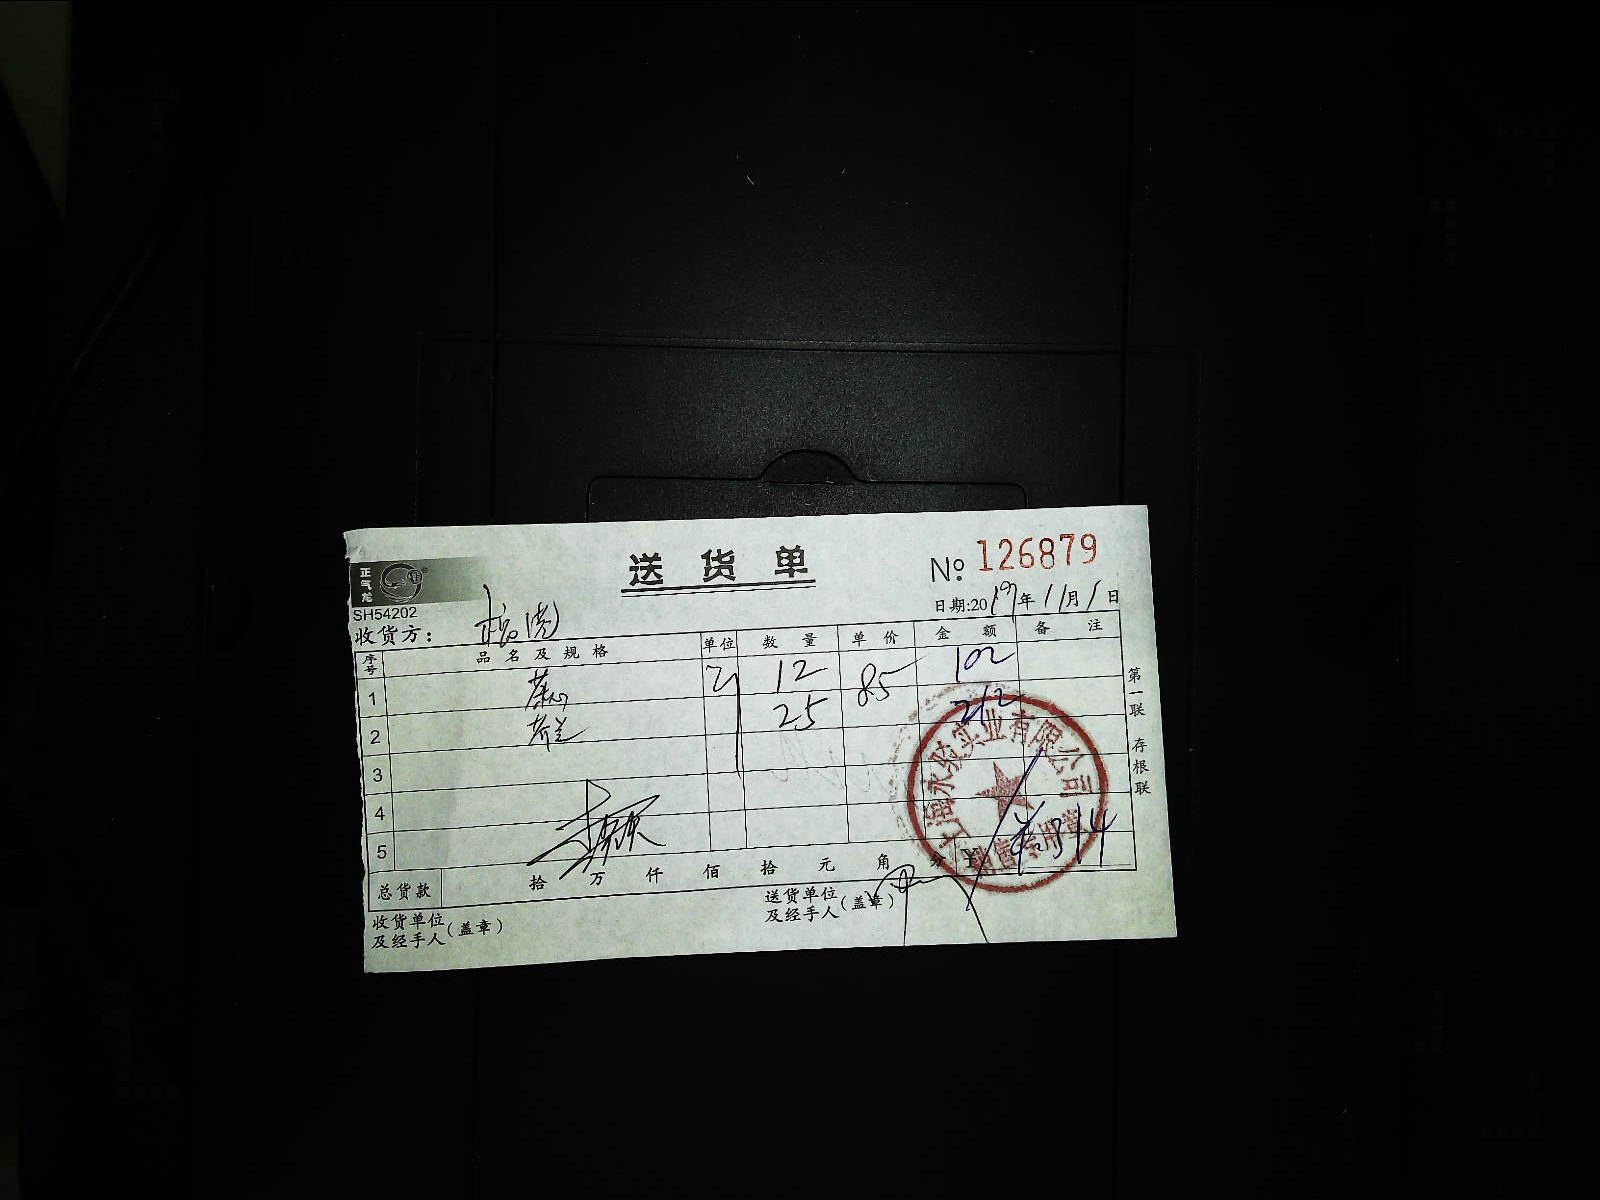 正气龙
送货单
№ 126879
SH54202
日期:2019年11月1日
收货方：
序号 品名及规格 单位 数量 单价 金额 备注
1 菜心 12 85 102
2 芥兰 25 212
3
4
5
共314
总货款 拾 万 仟 佰 拾 元 角 分
收货单位及经手人（盖章）
送货单位及经手人（盖章）
第一联 存根联
上海永骏实业有限公司
销售专用章